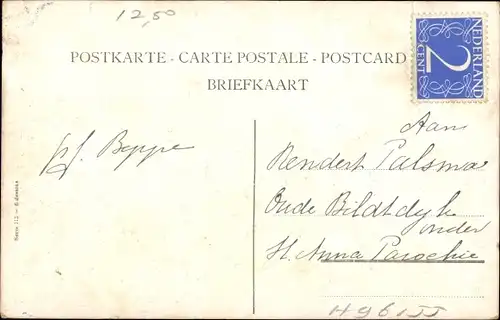 12,50
POSTKARTE - CARTE POSTALE - POSTCARD
BRIEFKAART
NEDERLAND
2
CENT
Beppe
Aan
Rendert Palsma
Oude Bildtdyk
onder
St. Anna Parochie
Serie 112
H96